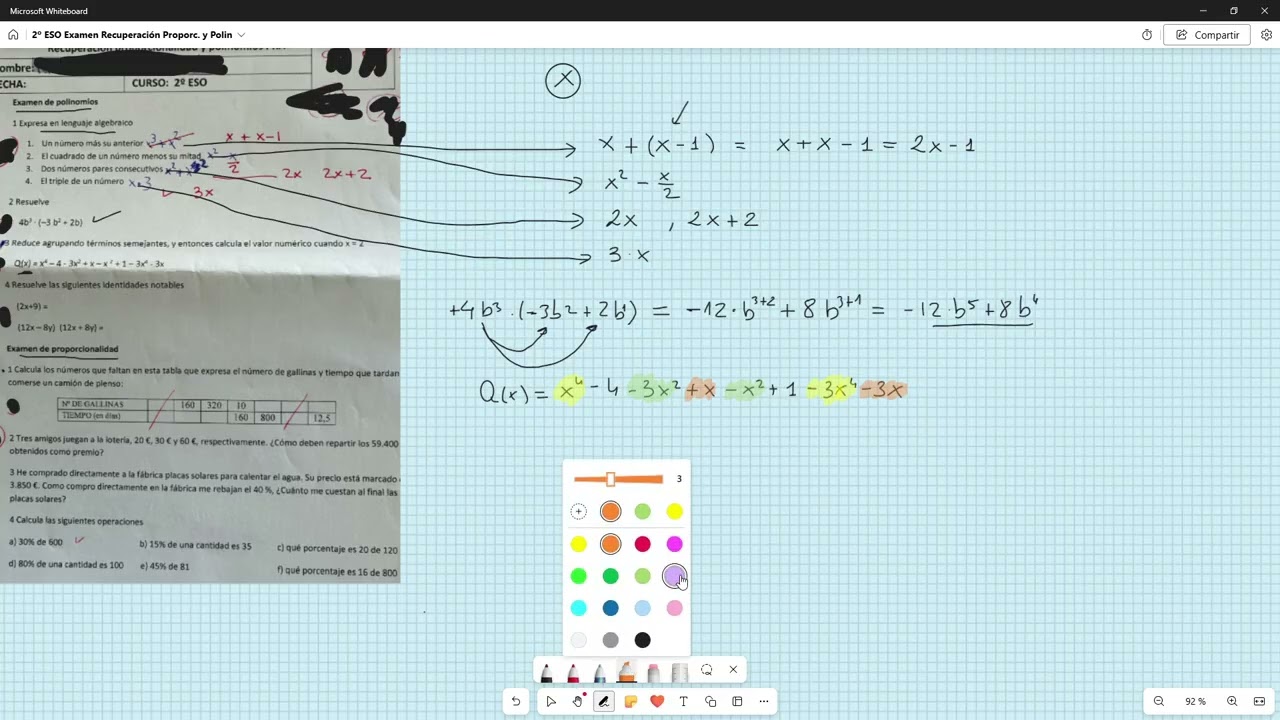 Microsoft Whiteboard
2º ESO Examen Recuperación Proporc. y Polin
Compartir
CURSO: 2º ESO
Examen de polinomios
1 Expresa en lenguaje algebraico
1. Un número más su anterior 3 + x² x + x-1
2. El cuadrado de un número menos su mitad x² x/2
3. Dos números pares consecutivos 2x 2x+2
4. El triple de un número x·3 3x
2 Resuelve
4b³ · (−3 b² + 2b)
3 Reduce agrupando términos semejantes, y entonces calcula el valor numérico cuando x = 2
Q(x) = x⁴ − 4 - 3x² + x − x² + 1 − 3x⁴ - 3x
4 Resuelve las siguientes identidades notables
(2x+9) =
(12x − 8y) (12x + 8y) =
Examen de proporcionalidad
1 Calcula los números que faltan en esta tabla que expresa el número de gallinas y tiempo que tardan
comerse un camión de pienso:
Nº DE GALLINAS 160 320 10
TIEMPO (en días) 160 800 12,5
2 Tres amigos juegan a la lotería, 20 €, 30 € y 60 €, respectivamente. ¿Cómo deben repartir los 59.400
obtenidos como premio?
3 He comprado directamente a la fábrica placas solares para calentar el agua. Su precio está marcado
3.850 €. Como compro directamente en la fábrica me rebajan el 40 %, ¿Cuánto me cuestan al final las
placas solares?
4 Calcula las siguientes operaciones
a) 30% de 600 b) 15% de una cantidad es 35 c) qué porcentaje es 20 de 120
d) 80% de una cantidad es 100 e) 45% de 81 f) qué porcentaje es 16 de 800
x
x + (x-1) = x + x - 1 = 2x - 1
x² - x/2
2x , 2x+2
3·x
+4b³·(-3b²+2b¹) = -12·b³⁺²+8b³⁺¹ = -12·b⁵+8b⁴
Q(x) = x⁴ - 4 - 3x² + x - x² + 1 - 3x⁴ - 3x
3
92 %